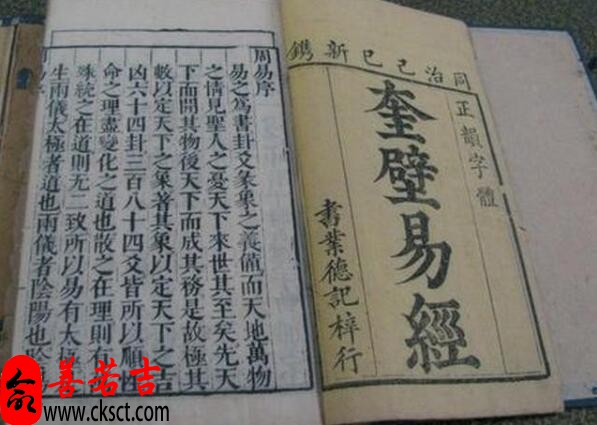 同治己巳新鐫
正韻字體
奎壁易經
書業德記梓行
周易序
易之爲書卦爻彖象之義備而天地萬物
之情見聖人之憂天下來世其至矣先天
下而開其物後天下而成其務是故極其
數以定天下之象著其象以定天下之吉
凶六十四卦三百八十四爻皆所以順性
命之理盡變化之道也散之在理則有
殊統之在道則无二致所以易有太極
生兩儀太極者道也兩儀者陰陽也
善若吉
www.cksct.com